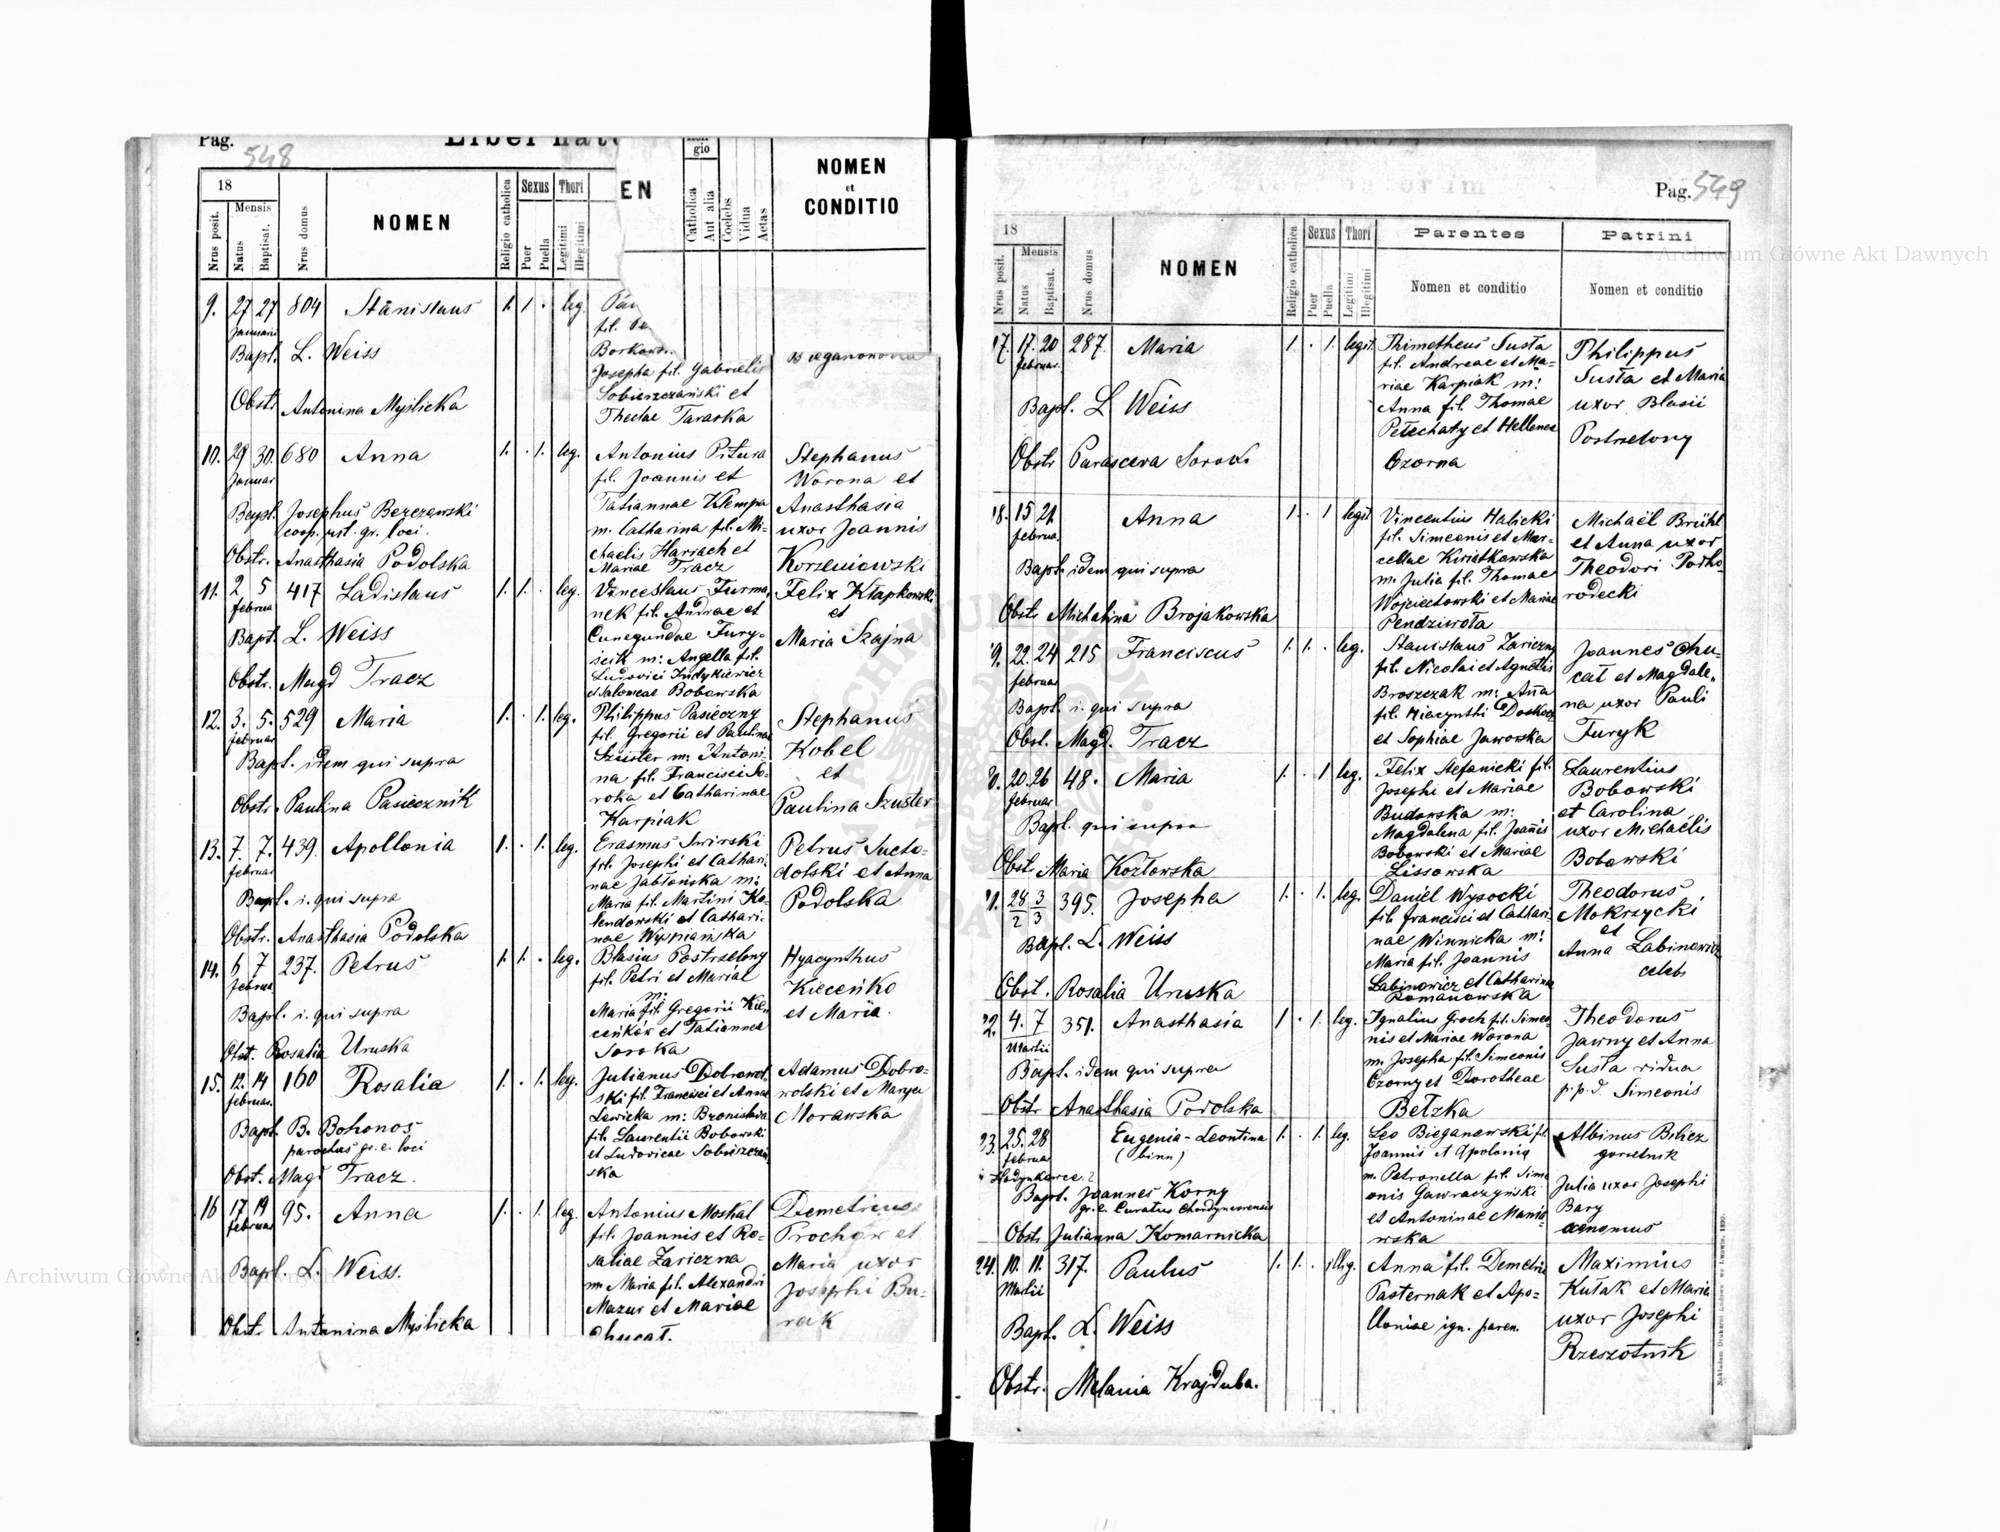 Pag. 548
Liber nat
18
Nrus posit.
Mensis
Natus
Baptisat.
Nrus domus
NOMEN
Religio catholica
Sexus
Puer
Puella
Thori
Legitimi
Illegitimi
EN
gio
Catholica
Aut alia
Coelebs
Vidua
Aetas
NOMEN
et
CONDITIO
9. 27 27 804 Stanislaus 1. 1. leg.
Januarii
Bapt. L. Weiss
Obstr. Antonina Myslicka
Borkows
Josepha fil. Gabrielis
Sobieszczański et
Theclae Taraska
10. 29 30. 680 Anna 1. . 1. leg.
Januar
Bapt. Josephus Bezezowski
coop. rit. gr. loci.
Obstr. Anasthasia Podolska
Antonius Pitura
fil. Joannis et
Tatiannae Klempa
m. Catharina fil. Mi=
chaelis Harrach et
Mariae Tracz
Stephanus
Worona et
Anasthasia
uxor Joannis
Korzeniowski
11. 2 5 417 Ladislaus 1. 1. leg.
februa
Bapt. L. Weiss
Obstr. Magd Tracz
Vinceslaus Furma,
nek fil. Andrae et
Cunegundae Fury-
seik m: Angella fil.
Ludovici Indykiewicz
et Salomeae Bobowska
Felix Kłapkowski
et
Maria Szajna
12. 3. 5. 529 Maria 1. . 1. leg.
februar
Bapt. idem qui supra
Obstr. Paulina Pasiecznik
Philippus Pasieczny
fil. Gregorii et Paulinae
Szuster m: Antoni-
na fil. Francisci So-
roka et Catharinae
Karpiak
Stephanus
Kobel
et
Paulina Szuster
13. 7. 7. 439. Apollonia 1. . 1. leg.
februar
Bapt. i. qui supra
Obstr. Anasthasia Podolska
Erasmus Swirski
fil. Josephi et Cathari-
nae Jabłońska m:
Maria fil. Martini Ko-
lendowski et Cathari-
nae Wyspiańska
Petrus Sucho-
dolski et Anna
Podolska
14. 6 7 237. Petrus 1. 1. . leg.
februa
Bapt. i. qui supra
Obst. Rosalia Uruska
Blasius Postrzelony
fil. Petri et Mariae
m:
Maria fil. Gregorii Kie-
ceńków et Tatiannea
Soroka
Hyacynthus
Kieceńko
et Maria.
15. 12. 14 160 Rosalia 1. . 1. leg.
februar.
Bapt. B. Bohonos
parochus gr. c. loci
Obst. Magd Tracz.
Julianus Dobrowol-
ski fil. Francisci et Annae
Lewicka m: Bronislava
fil. Laurentii Bobowski
et Ludovicae Sobieszczań
ska
Adamus Dobro-
wolski et Marya
Morawska
16 17 19 95. Anna 1. . 1. leg.
februar
Bapt. L. Weiss.
Obstr. Antonina Myslicka
Antonius Moskal
fil. Joannis et Ro-
saliae Zariczna
m Maria fil. Alexandri
Mazur et Mariae
Chucat.
Demetrius
Prochow et
Maria uxor
Josephi Bu-
rak
Pag. 549
18
Nrus posit.
Mensis
Natus
Baptisat.
Nrus domus
NOMEN
Religio catholica
Sexus
Puer
Puella
Thori
Legitimi
Illegitimi
Parentes
Nomen et conditio
Patrini
Nomen et conditio
17. 17. 20 287. Maria 1 . 1. legit.
februar.
Bapt. L. Weiss
Obstr Parasceva
Thimotheus Susta
fil. Andreae et Ma-
riae Karpiak m:
Anna fil. Thomae
Petechaty et Hellenea
Czorna
Philippus
Susta et Maria
uxor Blasii
Postrzelony
18. 15 21 Anna 1. . 1 legit
februa.
Bapt. idem qui supra
Obstr Michalina Brojakowska
Vincentius Halicki
fil. Simeonis et Mar-
cellae Kwiatkowska
m. Julia fil. Thomae
Wojciechowski et Mariae
Pendziwota
Michaël Brühl
et Anna uxor
Theodori Podho-
rodecki
19. 22. 24 215 Franciscus 1. 1. . leg.
februar
Bapt. i. qui supra
Obst. Magd. Tracz
Stanislaus Zariczny
fil. Nicolai et Agnetis
Broszczak m: Anna
et Sophiae Jaworska
Joannes Chu-
cat et Magdale-
na uxor Pauli
Furyk
20. 26 48. Maria 1. . 1 leg.
februar
Bapt. qui supra
Obst. Maria Kozłowska
Felix Stefanicki fil.
Josephi et Mariae
Budowska m.
Magdalena fil. Joannis
Bobowski et Mariae
Lissowska
Laurentius
Bobowski
et Carolina
uxor Michaëlis
Bobowski
28/2 3/3 395. Josepha 1. . 1. leg.
Bapt. L. Weiss
Obst. Rosalia Uruska
Daniel Wysocki
fil Francisci et Cathari-
nae Winnicka m:
Maria fil. Joannis
Labinowicz et Catharina
Romanowska
Theodorus
Mokrzycki
et
Anna Labinowicz
celebs
22. 4. 7 351. Anasthasia 1 . 1. leg.
Martii
Bapt. idem qui supra
Obstr Anasthasia Podolska
Ignatius Groch fil. Simeo-
nis et Mariae Worona
m. Josepha fil. Simeonis
Czorny et Dorotheae
Betzka
Theodorus
Jawny et Anna
Susta vidua
p. p. d. Simeonis
23. 25. 28 Eugenia-Leontina 1. . 1. leg.
februa (binn)
Bapt. Joannes Korny
gr. c. Curatus
Obstr Julianna Komarnicka
Leo Bieganowski fil.
Joannis et Apolonia
m. Petronella fil. Sime
onis Gawraczyński
et Antoninae Manio-
wska
Albinus Bilicz
gorzelnik
Julia uxor Josephi
Bary
24. 10. 11. 317. Paulus 1. 1. . illeg.
Martii
Bapt. L. Weiss
Obstr. Melania Krajduba.
Anna fil. Demetrii
Pasternak et Apo-
lloniae ign. paren.
Maximius
Kułak et Maria
uxor Josephi
Rzeszotnik
Archiwum Główne Akt Dawnych
Archiwum Główne Akt Dawnych